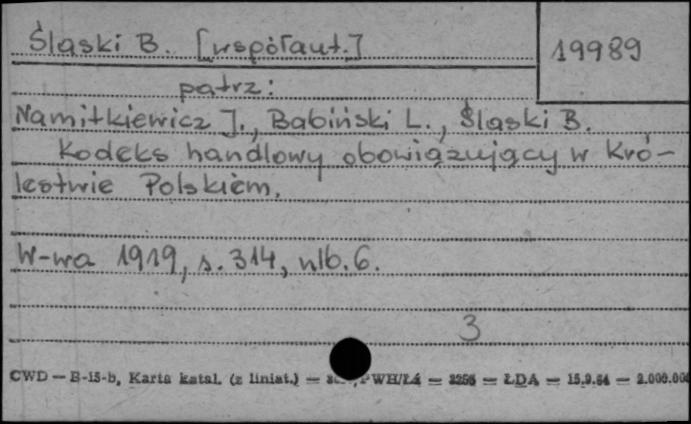 Śląski B. [współaut.]
19989
patrz:
Namitkiewicz J., Babiński L., Śląski B.
Kodeks handlowy obowiązujący w Kró-
lestwie Polskiem.
W-wa 1919, s. 314, nlb. 6.
3
CWD — B-15-b, Karta katal. (z liniat.) — PWH/Łá — 2256 — ŁDA — 15.9.54 — 2.000.000